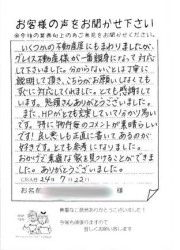 お客様の声をお聞かせ下さい
いくつかの不動産屋にもまわりましたが、
グレイス不動産様が一番親身になって対応
して下さいました。分からないことは丁寧に
説明して頂き、こちらがお願いしなくても
すぐに対応してくれました。とても感謝して
います。色々ありがとうございました。
また、HPがとても充実していて分かり易い
です。特に物件毎のコメントが素晴らしい
です！良し悪しも正直に書いてあるのが
好きです。とても参考になりました。
おかげで素敵な家を見つけることができ
ました。ありがとうございました。
ご記入日 24年7月22日
お名前
貴重なご意見ありがとうございました！
今後とも頑張りますので
宜しくお願い致します